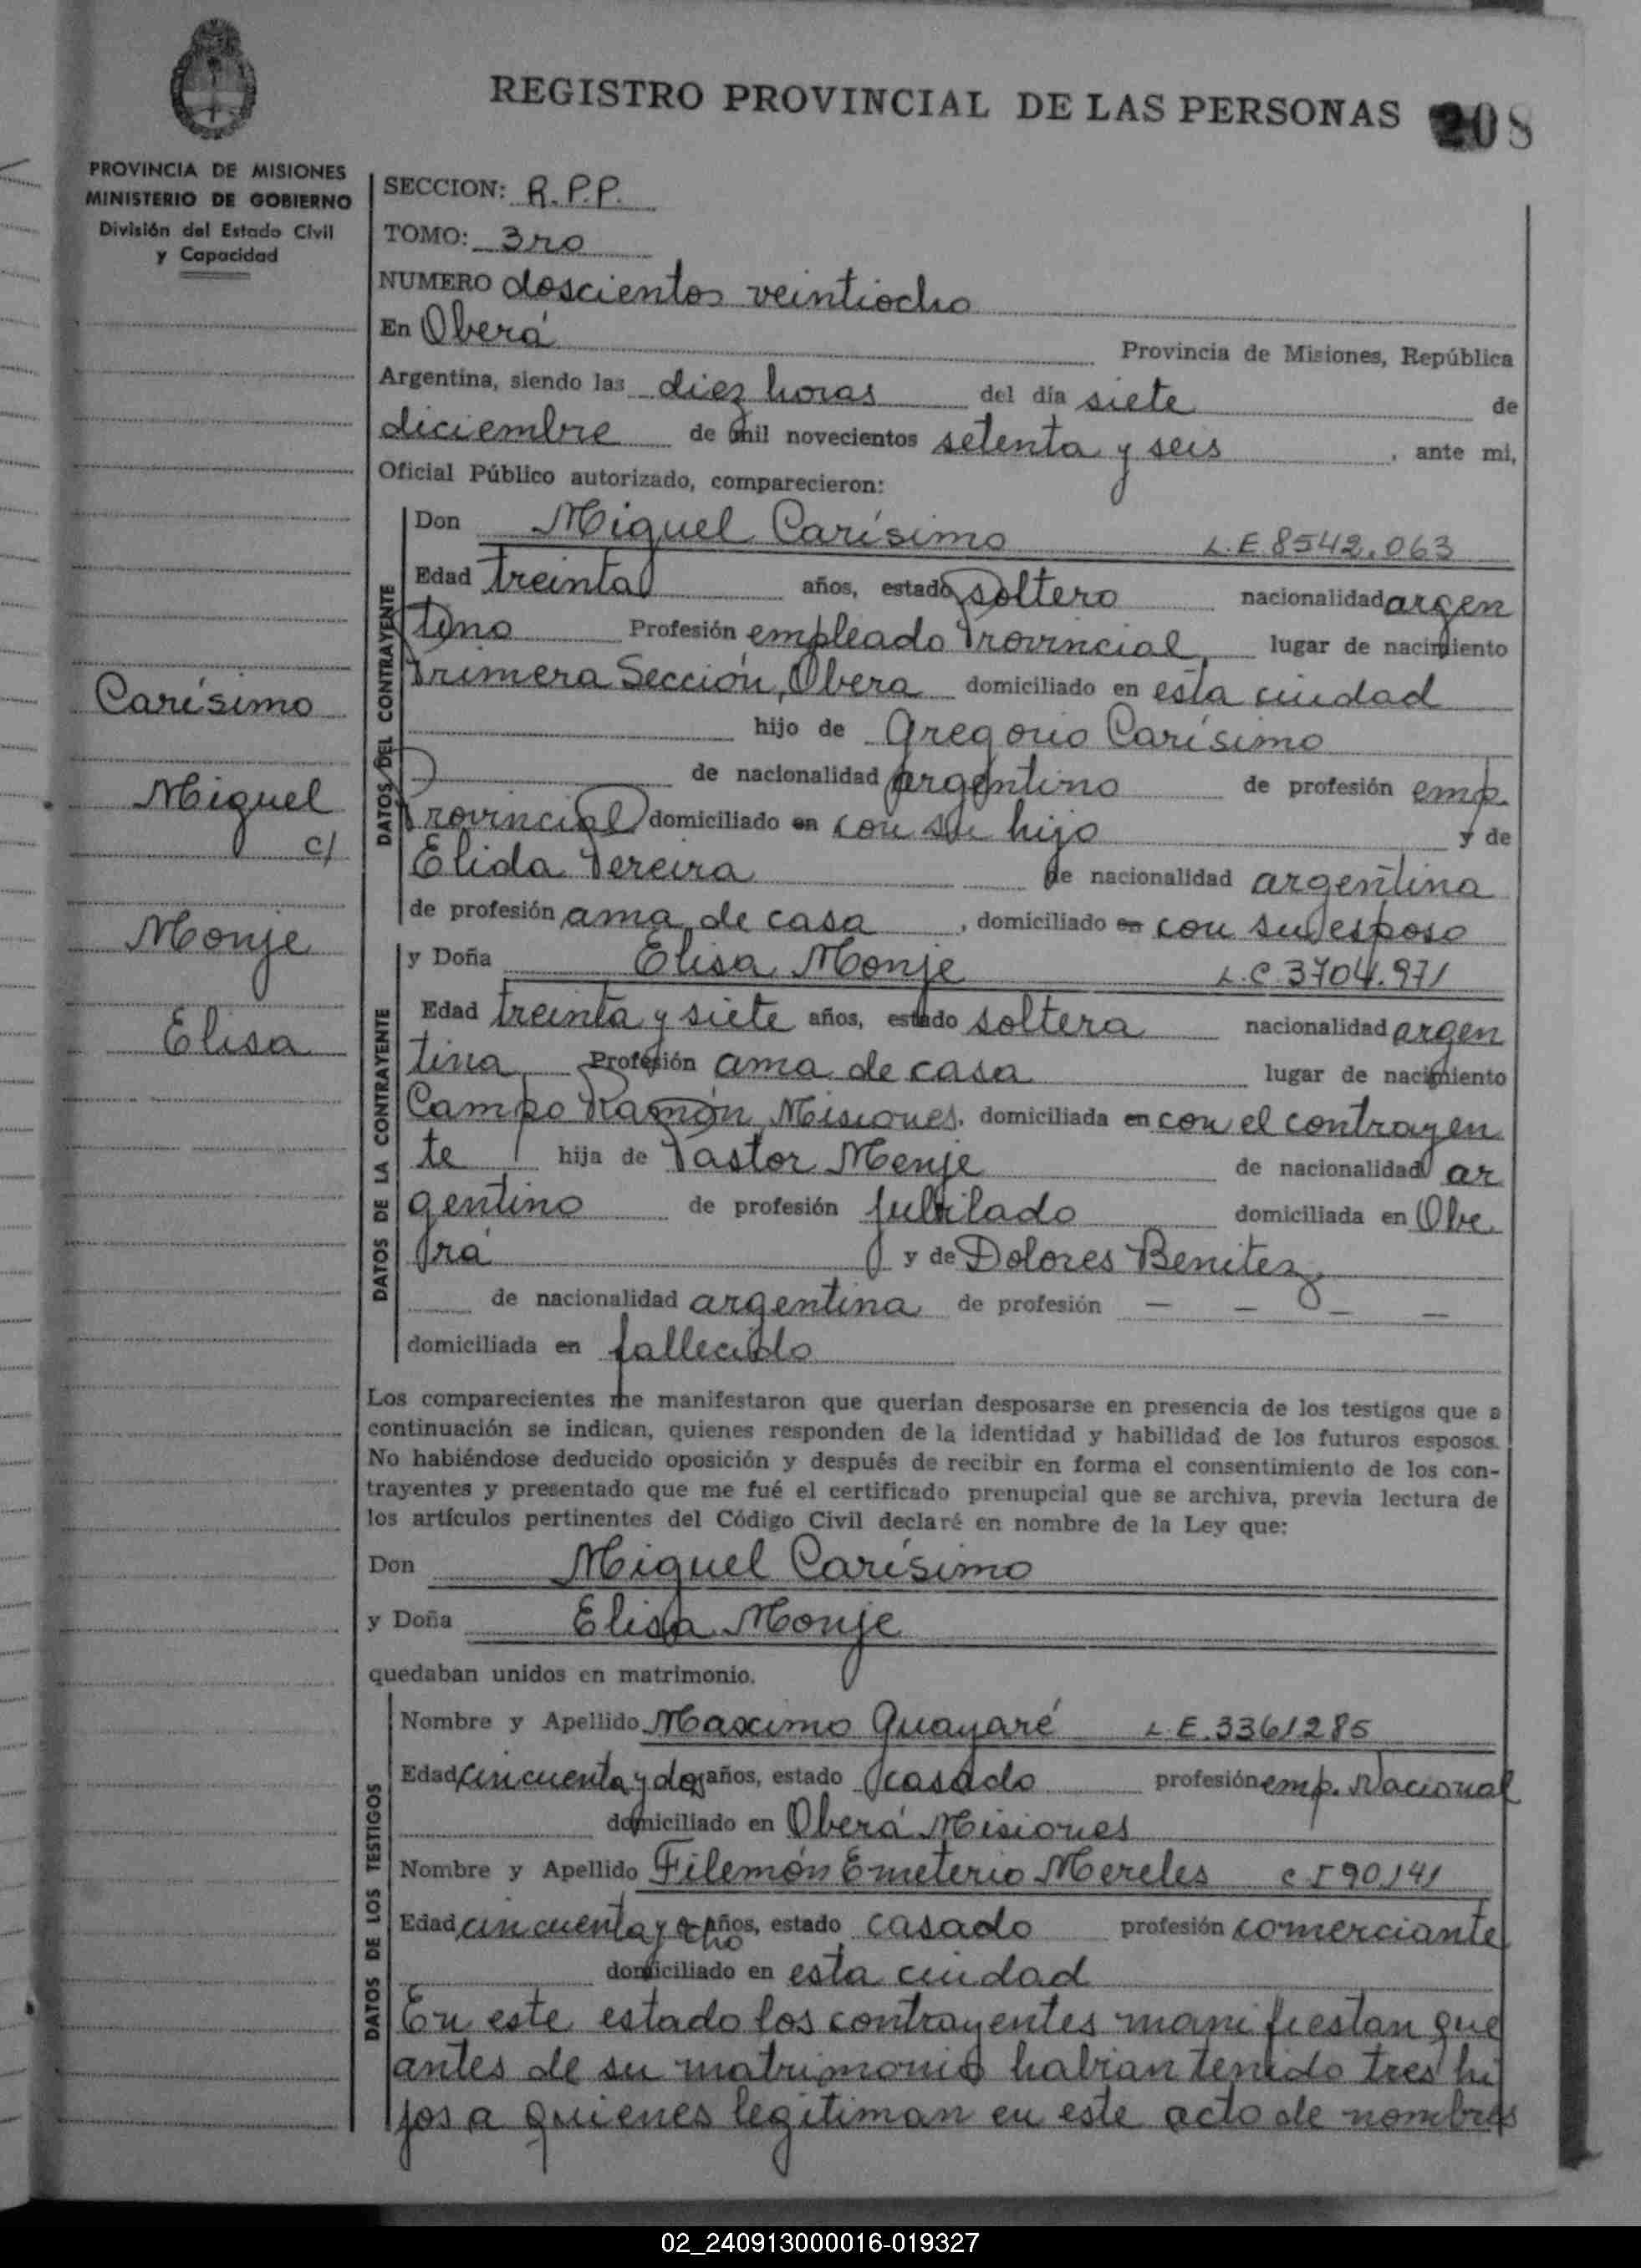 REGISTRO PROVINCIAL DE LAS PERSONAS 208
PROVINCIA DE MISIONES
MINISTERIO DE GOBIERNO
División del Estado Civil
y Capacidad
Carísimo
Miguel
c/
Monje
Elisa
SECCION: R.P.P.
TOMO: 3ro
NUMERO doscientos veintiocho
En Oberá Provincia de Misiones, República
Argentina, siendo las diez horas del día siete de
diciembre de mil novecientos setenta y seis, ante mi,
Oficial Público autorizado, comparecieron:
DATOS DEL CONTRAYENTE
Don Miguel Carísimo L.E 8542.063
Edad treinta años, estado soltero nacionalidad argen
tino Profesión empleado Provincial, lugar de nacimiento
Primera Sección, Obera domiciliado en esta ciudad
hijo de Gregorio Carísimo
de nacionalidad argentino de profesión emp.
Provincial domiciliado en con su hijo y de
Elida Pereira de nacionalidad argentina
de profesión ama de casa, domiciliado en con su esposo
DATOS DE LA CONTRAYENTE
y Doña Elisa Monje L.C. 3704.971
Edad treinta y siete años, estado soltera nacionalidad argen
tina Profesión ama de casa lugar de nacimiento
Campo Ramón, Misiones. domiciliada en con el contrayen
te hija de Pastor Menje de nacionalidad ar
gentino de profesión jubilado domiciliada en Obe
rá y de Dolores Benitez
de nacionalidad argentina de profesión — — — —
domiciliada en fallecido
Los comparecientes me manifestaron que querían desposarse en presencia de los testigos que a
continuación se indican, quienes responden de la identidad y habilidad de los futuros esposos.
No habiéndose deducido oposición y después de recibir en forma el consentimiento de los con-
trayentes y presentado que me fué el certificado prenupcial que se archiva, previa lectura de
los artículos pertinentes del Código Civil declaré en nombre de la Ley que:
Don Miguel Carísimo
y Doña Elisa Monje
quedaban unidos en matrimonio.
DATOS DE LOS TESTIGOS
Nombre y Apellido Maximo Guayaré L.E. 3361285
Edad cincuenta y dos años, estado casado profesión emp. Nacional
domiciliado en Oberá Misiones
Nombre y Apellido Filemón Emeterio Mereles C I 90141
Edad cincuenta y ocho años, estado casado profesión comerciante
domiciliado en esta ciudad
En este estado los contrayentes manifiestan que
antes de su matrimonio habian tenido tres hi
jos a quienes legitiman en este acto de nombres
02_240913000016-019327